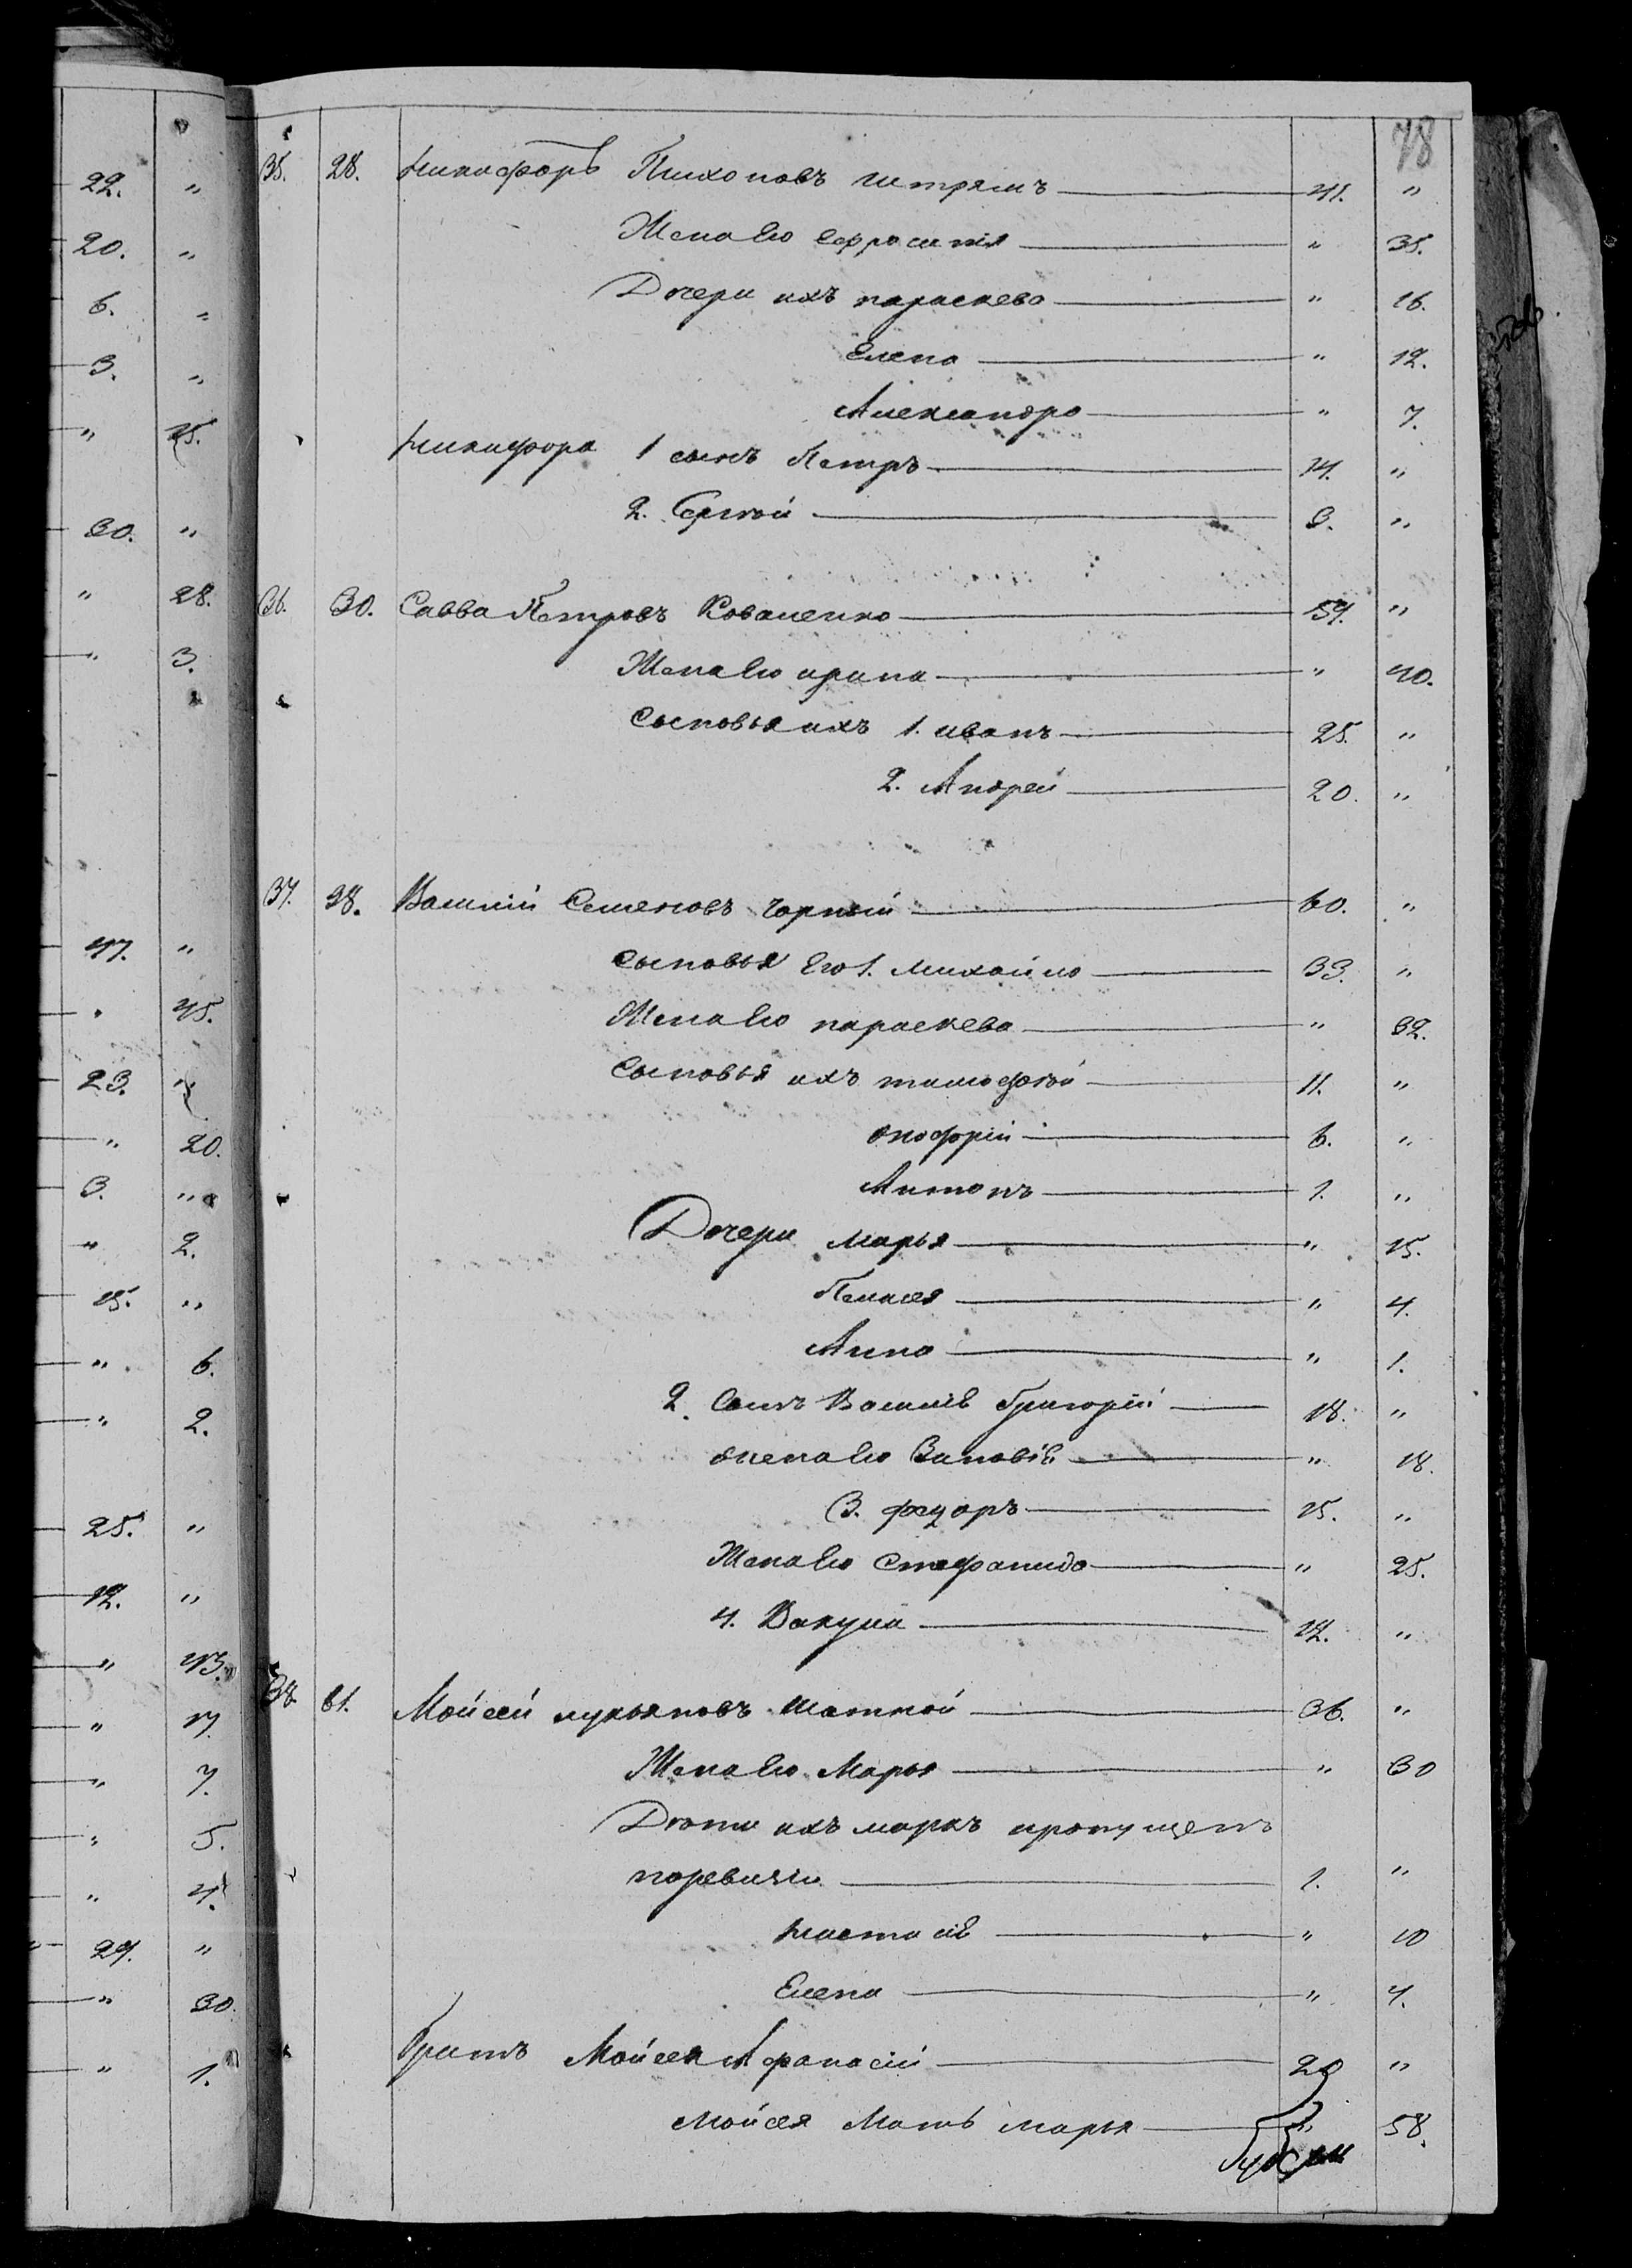 78
35. 28. Никифоръ Тихоновъ 41. "
Жена Его Ефросинія " 35.
Дочери ихъ параскева " 16.
Елена " 12.
Александра " 7.
Никифора 1 сынъ Петръ 14. "
2. Сергѣй 3. "
36. 30. Савва Петровъ Коваленко 59. "
Жена Его ирина " 40.
Сыновья ихъ 1. иванъ 25. "
2. Андрей 20. "
37. 38. Василій Семеновъ Чорный 60. "
Сыновья Его 1. михайло 33. "
Жена Его параскева " 32.
Сыновья ихъ тимофѣй 11. "
онофрій 6. "
Антонъ 1. "
Дочери марья " 15.
Пелагея " 4.
Анна " 1.
2. Сынъ Василія Григорій 18. "
жена Его Зиновія " 18.
3. федоръ 25. "
Жена Его Стефанида " 25.
4. Вакула 12. "
38. 61. Мойсей лукьяновъ 36. "
Жена Его Марья " 30
Дѣти ихъ маркъ пропущенъ
поревизіи 1. "
Настасія " 10
Елена " 4.
Братъ Мойсея Афанасій 20 "
Мойсея Мать марья " 58.
22. "
20. "
6. "
3. "
" 25.
30. "
" 28.
" 3.
47. "
" 45.
23. "
" 20.
3. "
" 2.
15. "
" 6.
" 2.
25. "
12. "
" 43.
" 17.
" 7.
" 5.
" 4.
29. "
" 30.
" 1.